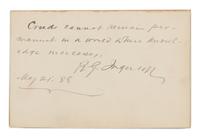 Creed cannot remain per-
manent in a world where knowl-
edge increases.
R. G. Ingersoll
May 21. 88